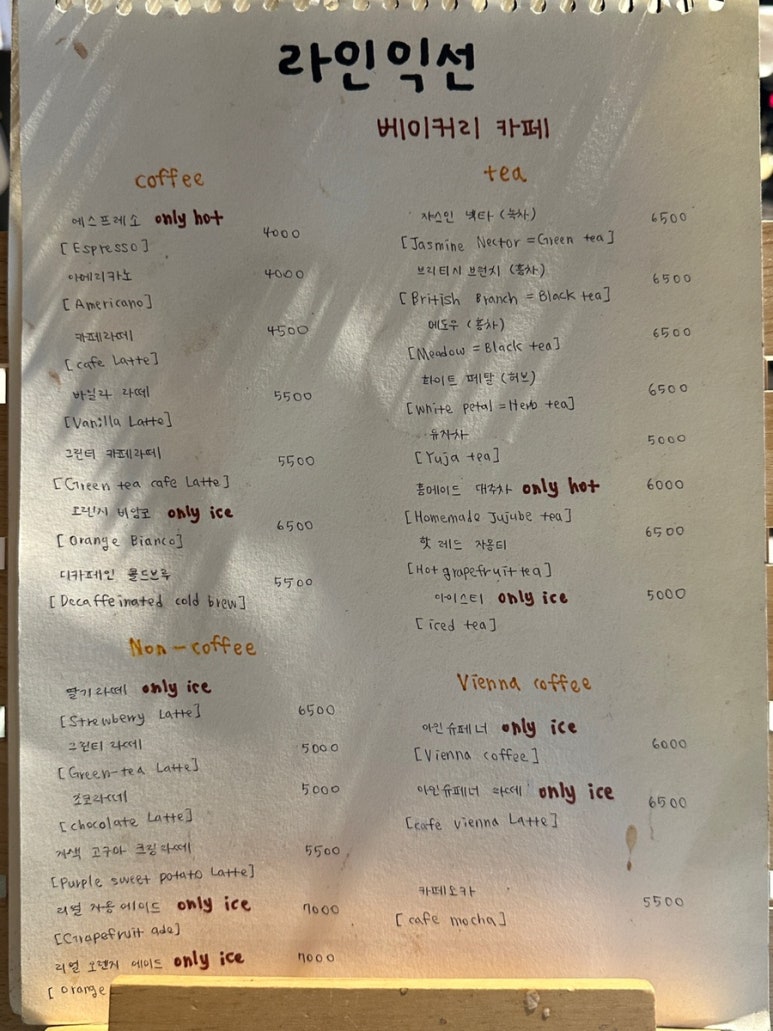 라인익선
베이커리 카페
coffee
에스프레소 only hot 4000
[Espresso]
아메리카노 4000
[Americano]
카페라떼 4500
[cafe Latte]
바닐라 라떼 5500
[Vanilla Latte]
그린티 카페라떼 5500
[Green tea cafe Latte]
오렌지 비앙코 only ice 6500
[Orange Bianco]
디카페인 콜드브루 5500
[Decaffeinated cold brew]
Non-coffee
딸기라떼 only ice 6500
[Strewberry Latte]
그린티 라떼 5000
[Green-tea Latte]
초코라떼 5000
[chocolate Latte]
자색 고구마 크림라떼 5500
[Purple sweet potato Latte]
리얼 자몽에이드 only ice 7000
[Grapefruit ade]
리얼 오렌지 에이드 only ice 7000
[Orange
tea
자스민 넥타 (녹차) 6500
[Jasmine Nector = Green tea]
브리티시 브런치 (홍차) 6500
[British Branch = Black tea]
메도우 (홍차) 6500
[Meadow = Black tea]
화이트 페탈 (허브) 6500
[white petal = Herb tea]
유자차 5000
[Yuja tea]
홈메이드 대추차 only hot 6000
[Homemade Jujube tea]
핫 레드 자몽티 6500
[Hot grapefruit tea]
아이스티 only ice 5000
[iced tea]
Vienna coffee
아인슈페너 only ice 6000
[Vienna coffee]
아인슈페너 라떼 only ice 6500
[cafe vienna Latte]
카페모카 5500
[cafe mocha]